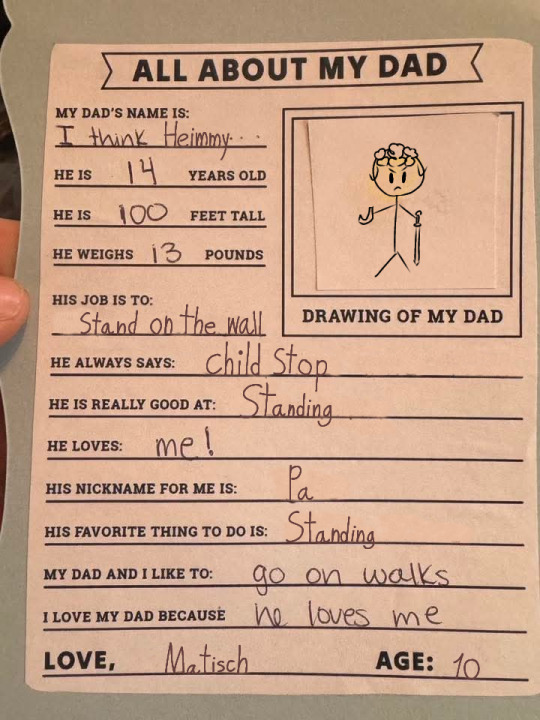 ALL ABOUT MY DAD
MY DAD'S NAME IS:
I think Heimmy...
HE IS 14 YEARS OLD
HE IS 100 FEET TALL
HE WEIGHS 13 POUNDS
HIS JOB IS TO:
Stand on the wall
DRAWING OF MY DAD
HE ALWAYS SAYS: child Stop
HE IS REALLY GOOD AT: Standing
HE LOVES: me!
HIS NICKNAME FOR ME IS: Pa
HIS FAVORITE THING TO DO IS: Standing
MY DAD AND I LIKE TO: go on walks
I LOVE MY DAD BECAUSE he loves me
LOVE, Matisch AGE: 10